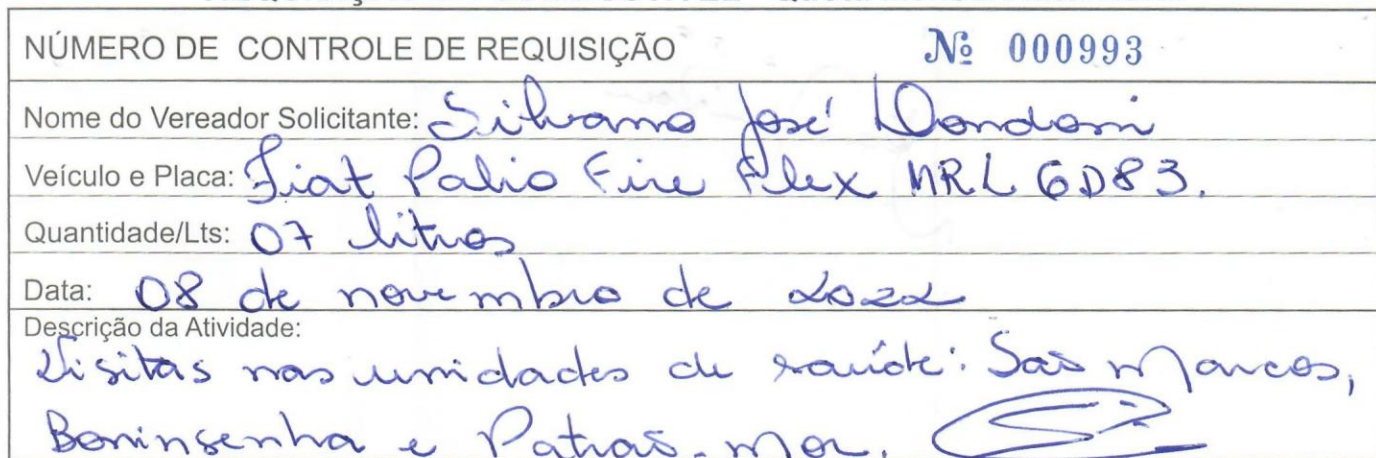 NÚMERO DE CONTROLE DE REQUISIÇÃO Nº 000993
Nome do Vereador Solicitante: Silvano José Dondoni
Veículo e Placa: Fiat Palio Fire Flex MRL 6D83.
Quantidade/Lts: 07 litros
Data: 08 de novembro de 2022
Descrição da Atividade:
Visitas nas unidades de saúde: São Marcos,
Boninsenha e Patrão-mor.